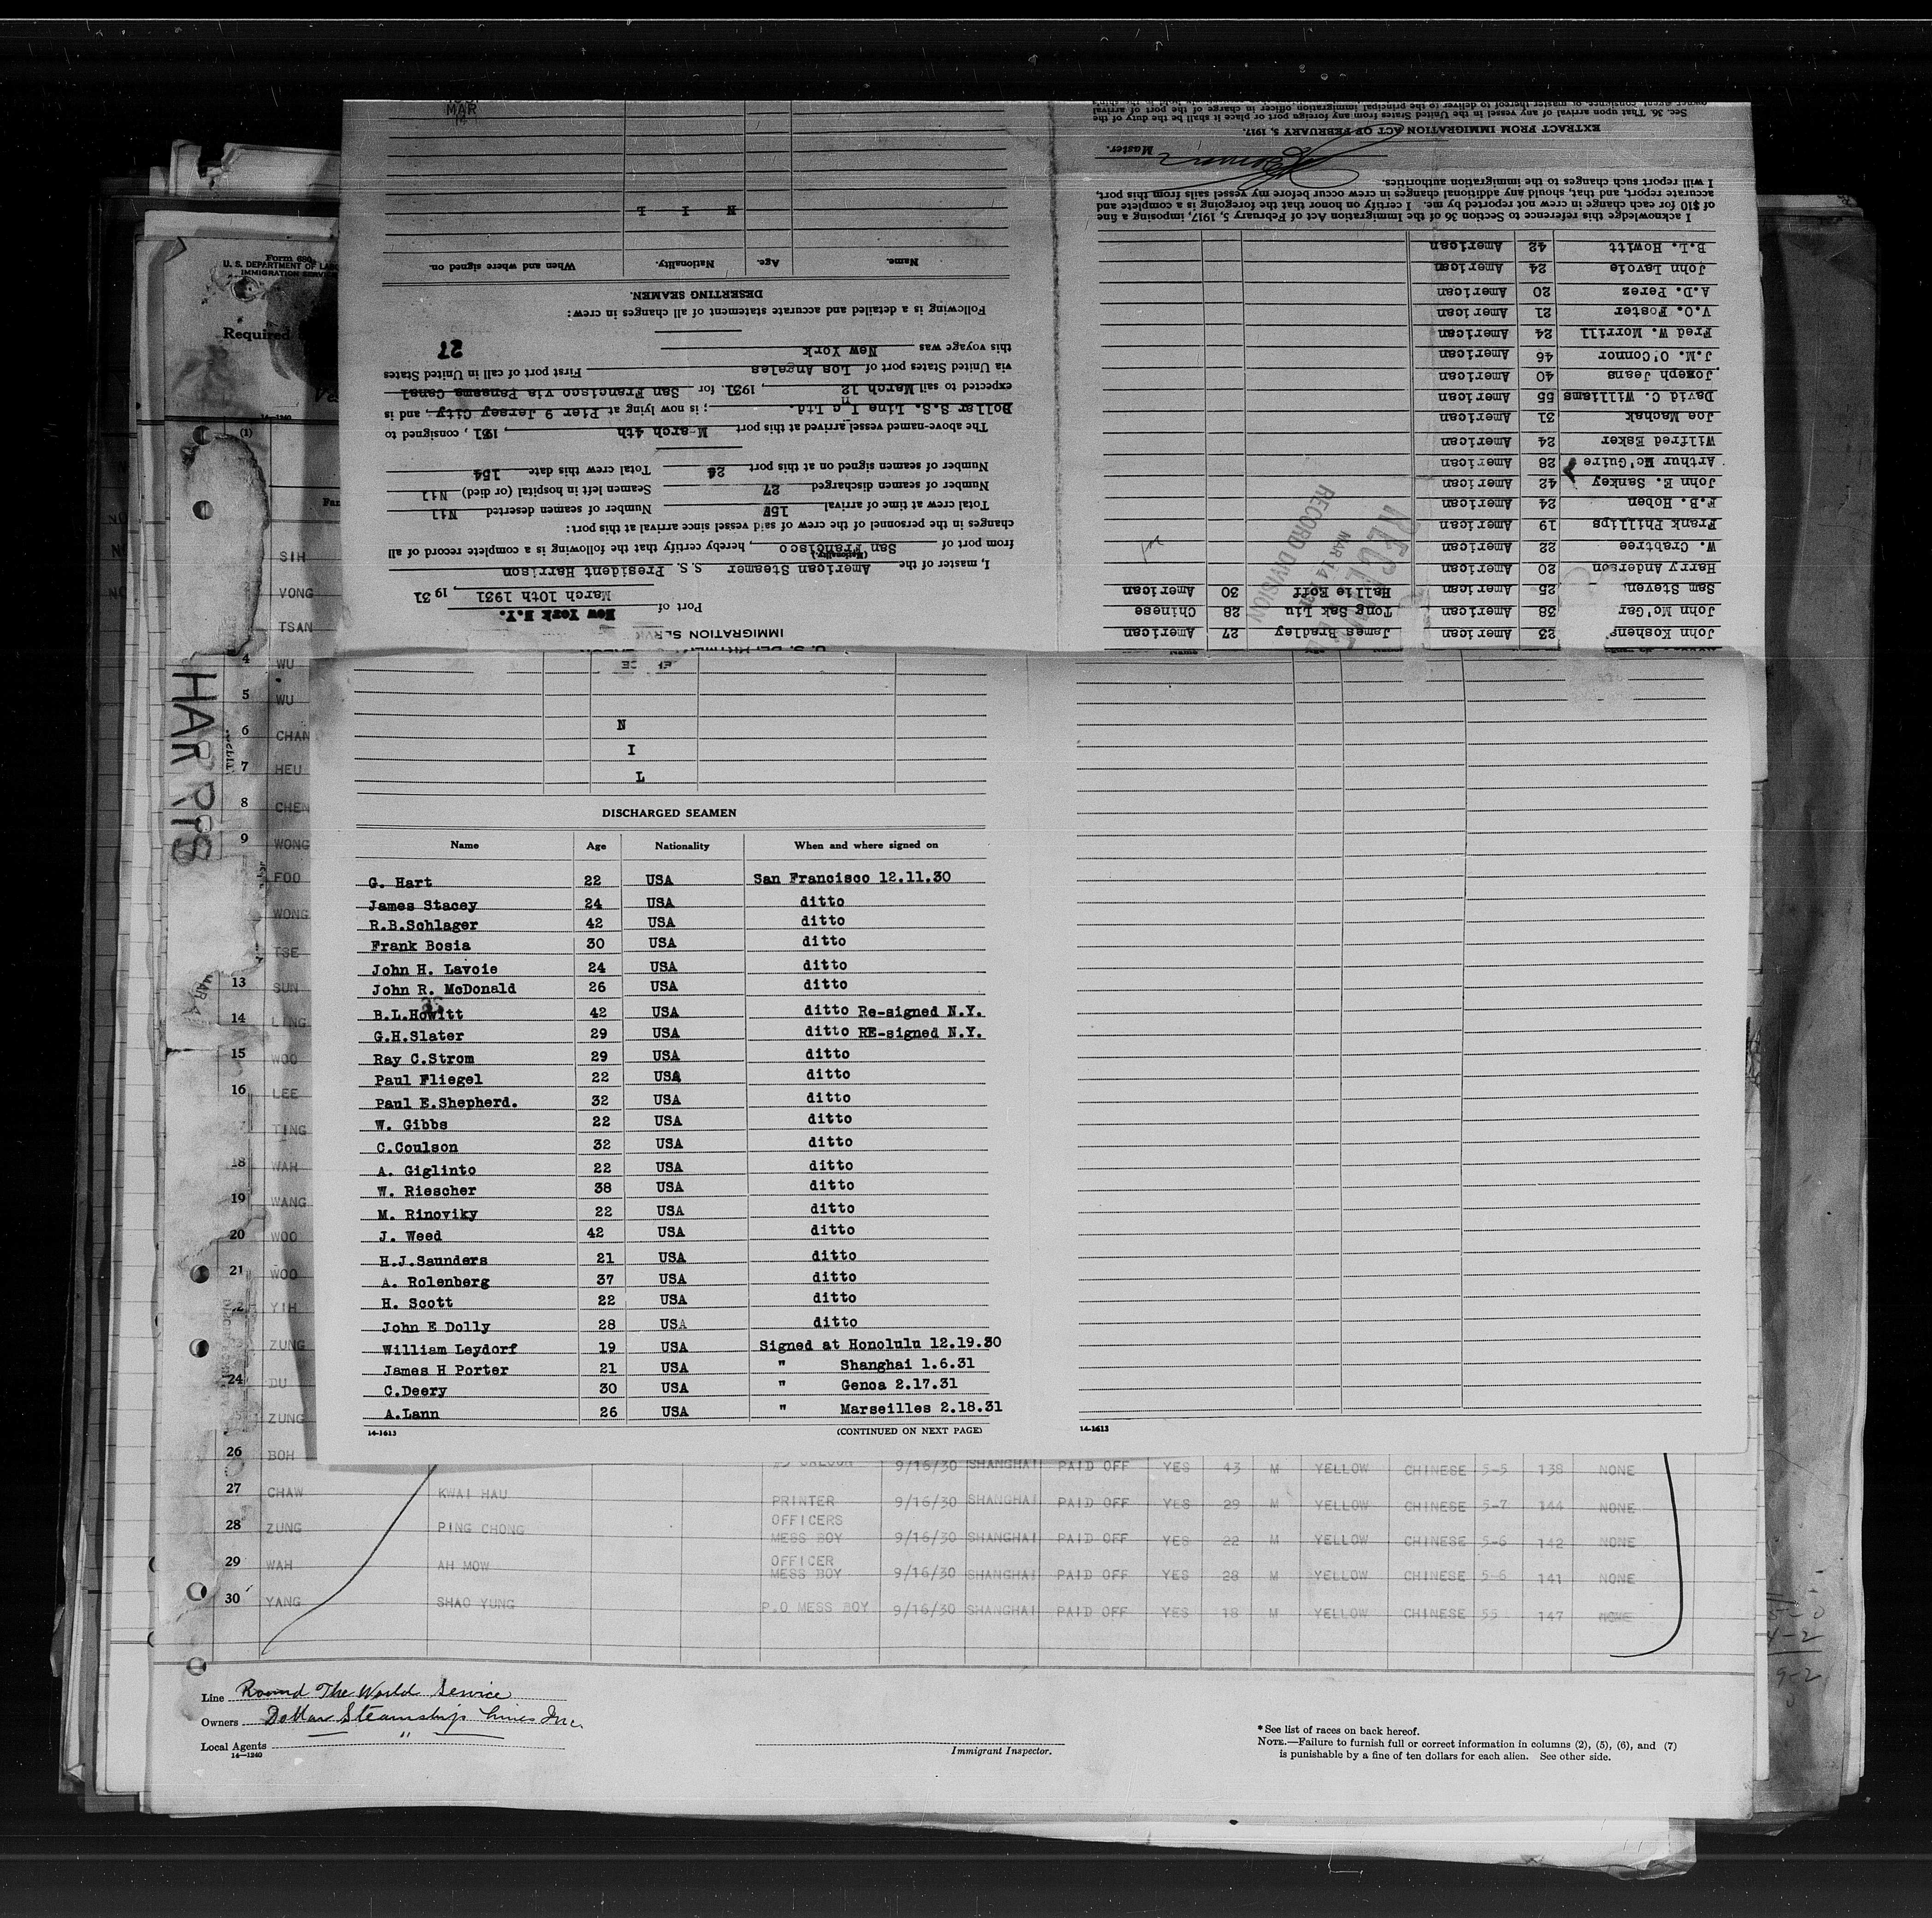 MAR
14
Sec. 36 That upon arrival of any vessel in the United States from any foreign port or place it shall be the duty of the
EXTRACT FROM IMMIGRATION ACT OF FEBRUARY 5, 1917.
Master.
I acknowledge this reference to Section 36 of the Immigration Act of February 5, 1917, imposing a fine
of $10 for each change in crew not reported by me. I certify on honor that the foregoing is a complete and
accurate report, and that, should any additional changes in crew occur before my vessel sails from this port,
I will report such changes to the immigration authorities.
John Koshens 23 American James Bradley 27 American
John Mc'Gar 38 American Tong Sak Liu 28 Chinese
Sam Steven 25 American Hallie Roff 30 American
Harry Anderson 20 American
W. Crabtree 22 American
Frank Phillips 19 American
F.B. Hoben 24 American
John E. Sankey 42 American
Arthur Mc'Guire 28 American
Wilfred Eaker 24 American
Joe Machak 31 American
David C. Williams 55 American
Joseph Jeans 40 American
J.M. O'Connor 46 American
Fred W. Morrill 24 American
V.O. Foster 21 American
A.D. Perez 20 American
John Lavoie 24 American
B.L. Howitt 42 American
RECEIVED
MAR 14 1931
RECORD DIVISION
IMMIGRATION SERVICE
Port of New York N.Y.
March 10th 1931, 1931
I, master of the American Steamer S.S. President Harrison
(Nationality.)
from port of San Francisco, hereby certify that the following is a complete record of all
changes in the personnel of the crew of said vessel since arrival at this port:
Total crew at time of arrival 157 Number of seamen deserted Nil
Number of seamen discharged 27 Seamen left in hospital (or died) Nil
Number of seamen signed on at this port 24 Total crew this date 154
The above-named vessel arrived at this port March 4th, 1931, consigned to
Dollar S.S. Line Inc Ltd.; is now lying at Pier 9 Jersey City, and is
expected to sail March 12, 1931. for San Francisco via Panama Canal
via United States port of Los Angeles First port of call in United States
this voyage was New York
27
Following is a detailed and accurate statement of all changes in crew:
DESERTING SEAMEN.
Name. Age. Nationality. When and where signed on.
N I L
N
I
L
DISCHARGED SEAMEN
Name Age Nationality When and where signed on
G. Hart 22 USA San Francisco 12.11.30
James Stacey 24 USA ditto
R.B.Schlager 42 USA ditto
Frank Bosia 30 USA ditto
John H. Lavoie 24 USA ditto
John R. McDonald 26 USA ditto
B.L.Howitt 42 USA ditto Re-signed N.Y.
G.H.Slater 29 USA ditto RE-signed N.Y.
Ray C.Strom 29 USA ditto
Paul Fliegel 22 USA ditto
Paul E.Shepherd. 32 USA ditto
W. Gibbs 22 USA ditto
C.Coulson 32 USA ditto
A. Giglinto 22 USA ditto
W. Riescher 38 USA ditto
M. Rinoviky 22 USA ditto
J. Weed 42 USA ditto
H.J.Saunders 21 USA ditto
A. Rolenberg 37 USA ditto
H. Scott 22 USA ditto
John E Dolly 28 USA ditto
William Leydorf 19 USA Signed at Honolulu 12.19.30
James H Porter 21 USA " Shanghai 1.6.31
C.Deery 30 USA " Genoa 2.17.31
A.Lann 26 USA " Marseilles 2.18.31
14-1613 (CONTINUED ON NEXT PAGE) 14-1613
Form 680
U. S. DEPARTMENT OF LAB
IMMIGRATION SERVICE
Required
14-1240
(1)
HARRIS
SIH
VONG
TSAN
4 WU
5 WU
6 CHAN
7 HEU
8 CHEN
9 WONG
FOO
WONG
TSE
13 SUN
14 LING
15 WOO
16 LEE
TING
18 WAH
19 WANG
20 WOO
21 WOO
YIH
ZUNG
24 DU
ZUNG
26 BOH 9/16/30 SHANGHAI PAID OFF YES 43 M YELLOW CHINESE 5-5 138 NONE
27 CHAW KWAI HAU PRINTER 9/16/30 SHANGHAI PAID OFF YES 29 M YELLOW CHINESE 5-7 144 NONE
28 ZUNG PING CHONG OFFICERS MESS BOY 9/16/30 SHANGHAI PAID OFF YES 22 M YELLOW CHINESE 5-6 142 NONE
29 WAH AH MOW OFFICER MESS BOY 9/16/30 SHANGHAI PAID OFF YES 28 M YELLOW CHINESE 5-6 141 NONE
30 YANG SHAO YUNG P.O MESS BOY 9/16/30 SHANGHAI PAID OFF YES 18 M YELLOW CHINESE 55 147 NONE
Line Round The World Service
Owners Dollar Steamship Lines Inc.
Local Agents "
14-1240
Immigrant Inspector.
*See list of races on back hereof.
NOTE.—Failure to furnish full or correct information in columns (2), (5), (6), and (7)
is punishable by a fine of ten dollars for each alien. See other side.